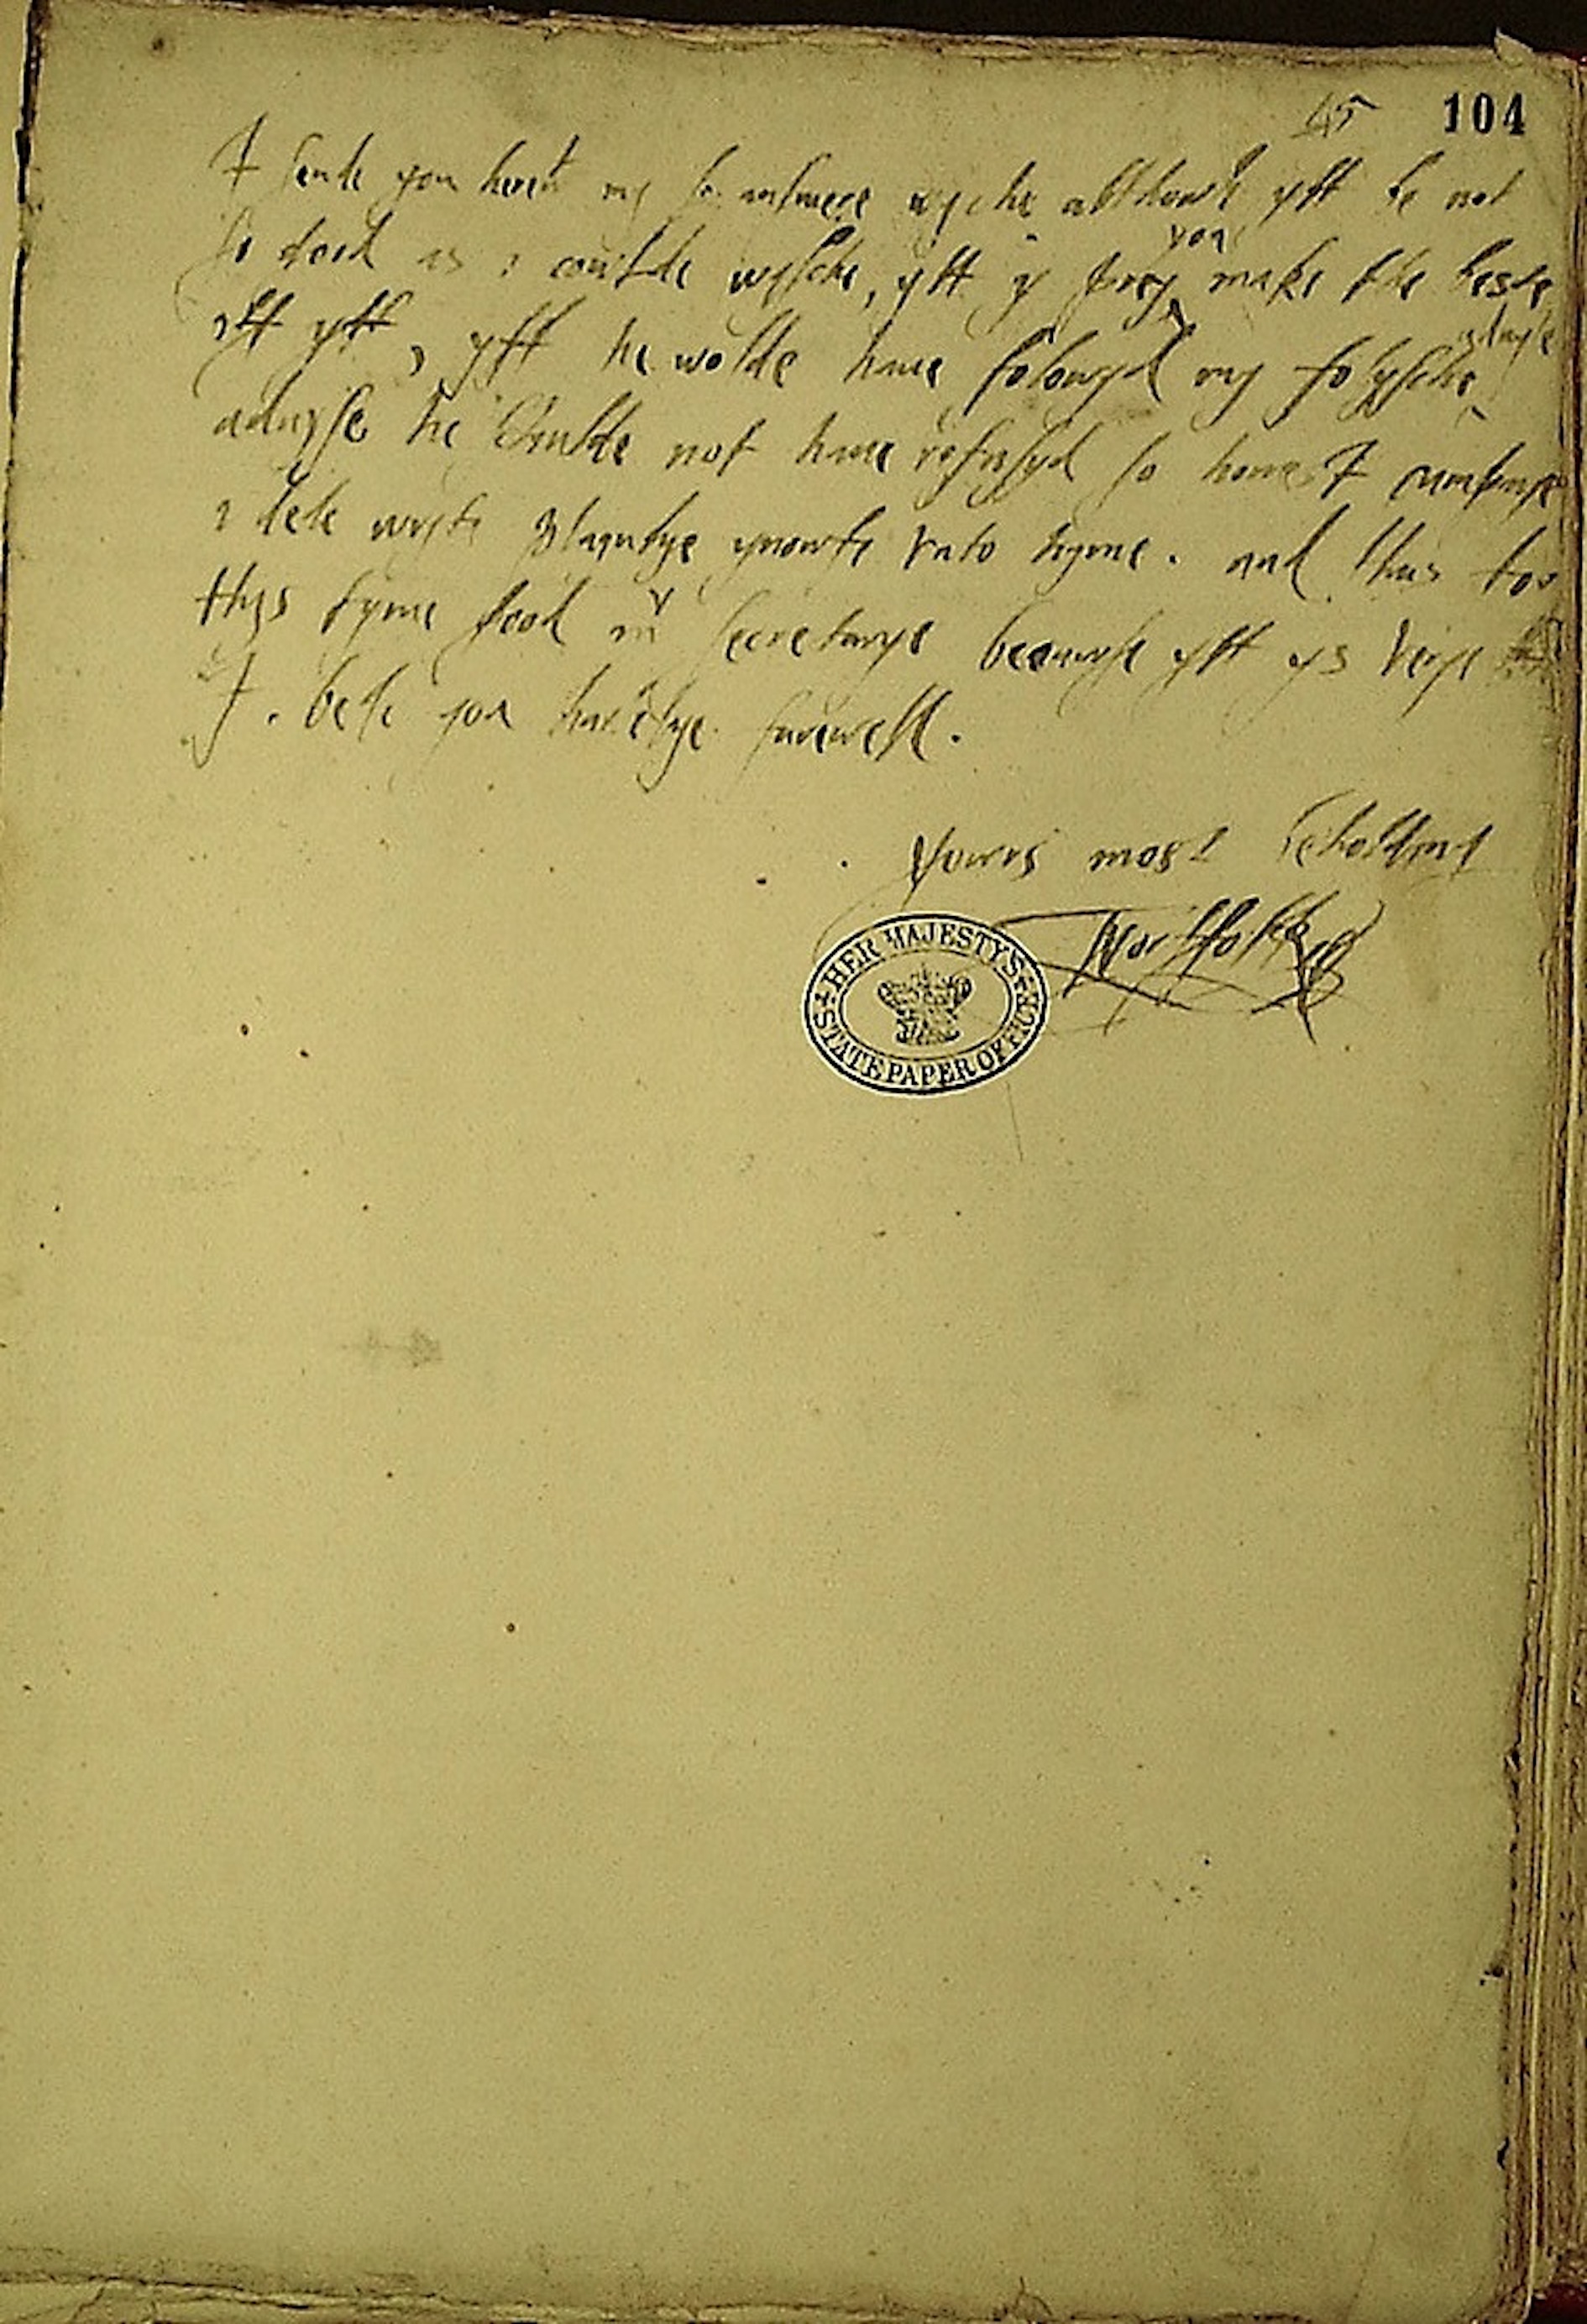 45 104
I sende you herein my answere wyche allthowh ytt be not
so good as i coulde wysche, ytt y pray you make the beste
off ytt, yff he wolde have folowyd my folysche
advyse he shulde not have refusyd so honest
i dede wryte playnlye ynowh vnto hyme. and thus for
thys tyme good mr secretarye because ytt ys verye
I bede you hartelye farewell.
yours most
Norffolke
HER MAJESTY'S STATE PAPER OFFICE